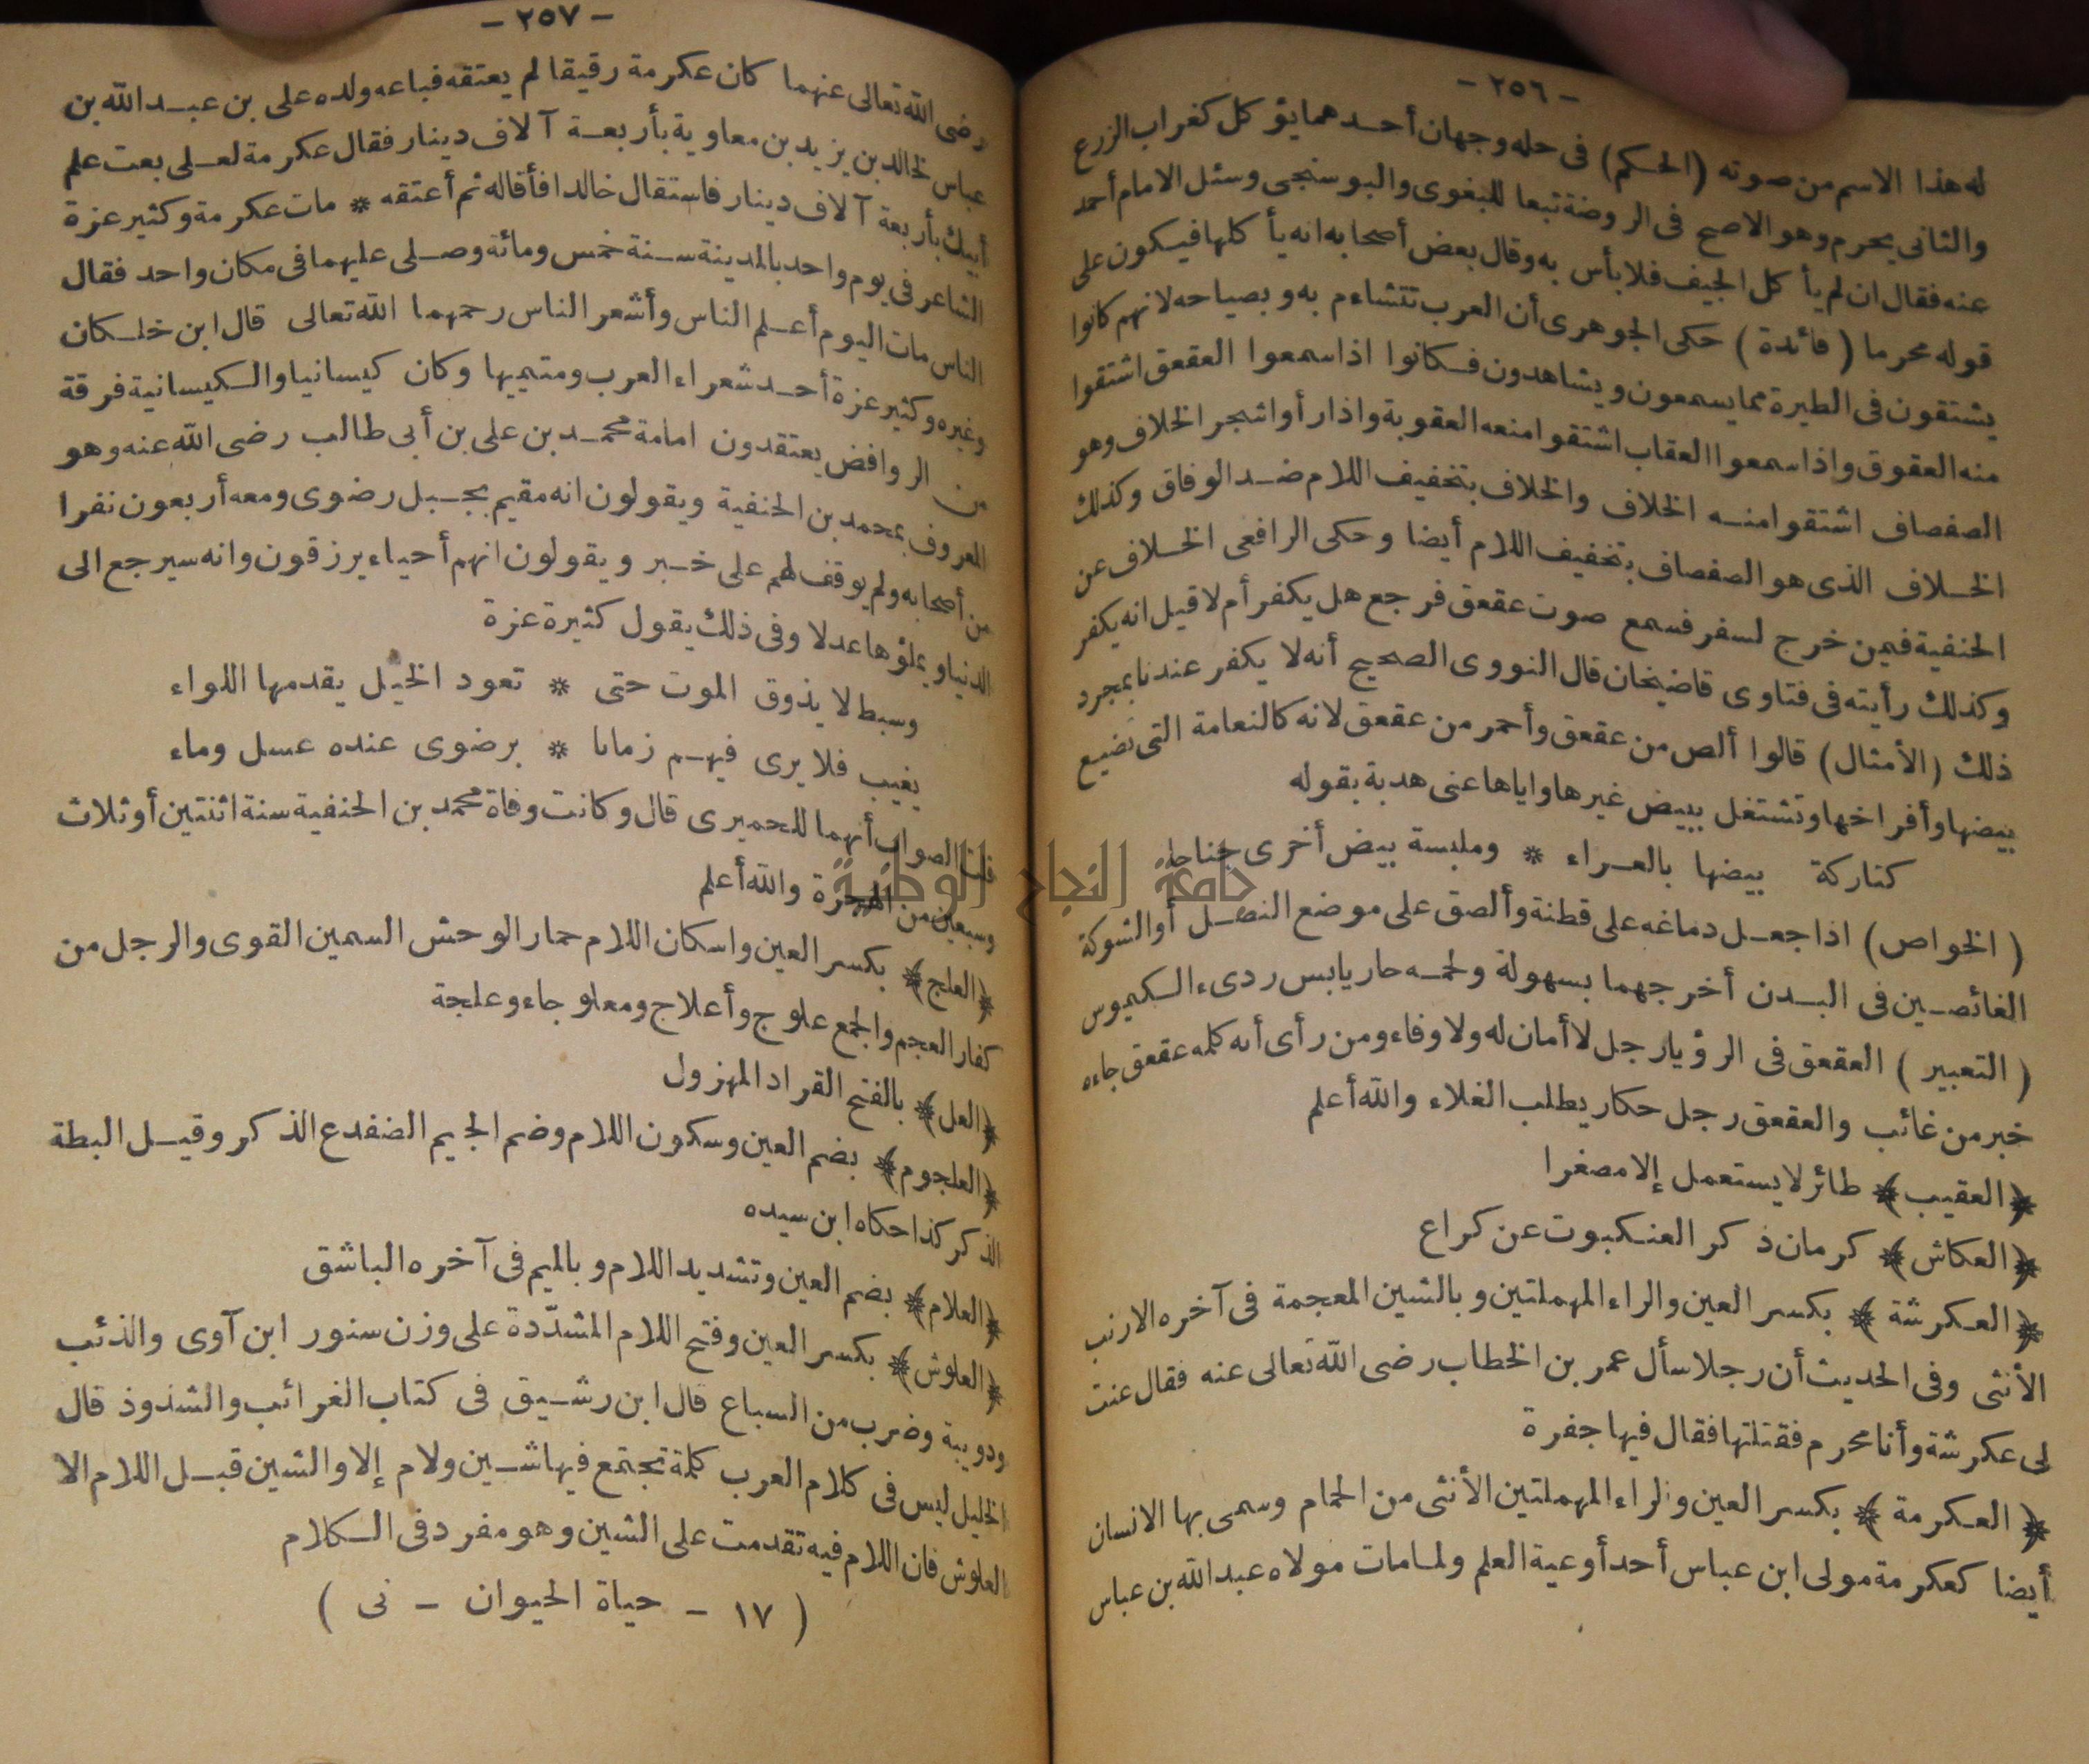 - ٢٥٦ -
له هذا الاسم من صوته (الحكم) فى حله وجهان أحدهما يؤكل كغراب الزرع
والثانى يحرم وهو الاصح فى الروضة تبعا للبغوى والبوسنجى وسئل الامام أحمد
عنه فقال ان لم يأكل الجيف فلا بأس به وقال بعض أصحابه انه يأكلها فيكون على
قوله محرما (فائدة) حكى الجوهرى أن العرب تتشاءم به وبصياحه لانهم كانوا
يشتقون فى الطيرة مما يسمعون ويشاهدون فكانوا اذا سمعوا العقعق اشتقوا
منه العقوق واذا سمعوا العقاب اشتقوا منعه العقوبة واذا رأوا شجر الخلاف وهو
الصفصاف اشتقوا منه الخلاف والخلاف بتخفيف اللام ضد الوفاق وكذلك
الخلاف الذى هو الصفصاف بتخفيف اللام أيضا وحكى الرافعى الخلاف عن
الحنفية فيمن خرج لسفر فسمع صوت عقعق فرجع هل يكفر أم لا قيل انه يكفر
وكذلك رأيته فى فتاوى قاضيخان قال النووى الصحيح أنه لا يكفر عندنا بمجرد
ذلك (الأمثال) قالوا ألص من عقعق وأحمر من عقعق لانه كالنعامة التى تضيع
بيضها وأفراخها وتشتغل ببيض غيرها واياها عنى هدبة بقوله
كتاركة بيضها بالعراء * وملبسة بيض أخرى جناحا
(الخواص) اذا جعل دماغه على قطنة وألصق على موضع النصل أو الشوكة
الغائصين فى البدن أخرجهما بسهولة ولحمه حار يابس ردىء الكيموس
(التعبير) العقعق فى الرؤيا رجل لا أمان له ولا وفاء ومن رأى أنه كلمه عقعق جاءه
خبر من غائب والعقعق رجل حكار يطلب الغلاء والله أعلم
﴿العقيب﴾ طائر لا يستعمل إلا مصغرا
﴿العكاش﴾ كرمان ذكر العنكبوت عن كراع
﴿العكرشة﴾ بكسر العين والراء المهملتين وبالشين المعجمة فى آخره الارنب
الأنثى وفى الحديث أن رجلا سأل عمر بن الخطاب رضى الله تعالى عنه فقال عنت
لى عكرشة وأنا محرم فقتلتها فقال فيها جفرة
﴿العكرمة﴾ بكسر العين والراء المهملتين الأنثى من الحمام وسمى بها الانسان
أيضا كعكرمة مولى ابن عباس أحد أوعية العلم ولما مات مولاه عبد الله بن عباس
- ٢٥٧ -
رضى الله تعالى عنهما كان عكرمة رقيقا لم يعتقه فباعه ولده على بن عبد الله بن
عباس لخالد بن يزيد بن معاوية بأربعة آلاف دينار فقال عكرمة لعلى بعت علم
أبيك بأربعة آلاف دينار فاستقال خالدا فأقاله ثم أعتقه * مات عكرمة وكثير عزة
الشاعر فى يوم واحد بالمدينة سنة خمس ومائة وصلى عليهما فى مكان واحد فقال
الناس مات اليوم أعلم الناس وأشعر الناس رحمهما الله تعالى قال ابن خلكان
وغيره وكثير عزة أحد شعراء العرب ومتيميها وكان كيسانيا والكيسانية فرقة
من الروافض يعتقدون امامة محمد بن على بن أبى طالب رضى الله عنه وهو
المعروف بمحمد بن الحنفية ويقولون انه مقيم بجبل رضوى ومعه أربعون نفرا
من أصحابه ولم يوقف لهم على خبر ويقولون انهم أحياء يرزقون وانه سيرجع الى
الدنيا ويملؤها عدلا وفى ذلك يقول كثيرة عزة
وسبط لا يذوق الموت حتى * تعود الخيل يقدمها اللواء
يغيب فلا يرى فيهم زمانا * برضوى عنده عسل وماء
قلت الصواب أنهما للحميرى قال وكانت وفاة محمد بن الحنفية سنة اثنتين أو ثلاث
وسبعين من الهجرة والله أعلم
﴿العلج﴾ بكسر العين واسكان اللام حمار الوحش السمين القوى والرجل من
كفار العجم والجمع علوج وأعلاج ومعلوجاء وعلجة
﴿العل﴾ بالفتح القراد المهزول
﴿العلجوم﴾ بضم العين وسكون اللام وضم الجيم الضفدع الذكر وقيل البطة
الذكر كذا حكاه ابن سيده
﴿العلام﴾ بضم العين وتشديد اللام وبالميم فى آخره الباشق
﴿العلوش﴾ بكسر العين وفتح اللام المشدّدة على وزن سنور ابن آوى والذئب
ودويبة وضرب من السباع قال ابن رشيق فى كتاب الغرائب والشذوذ قال
الخليل ليس فى كلام العرب كلمة تجتمع فيها شين ولام إلا والشين قبل اللام الا
العلوش فان اللام فيه تقدمت على الشين وهو مفرد فى الكلام
(١٧ - حياة الحيوان - نى)
جامعة النجاح الوطنية